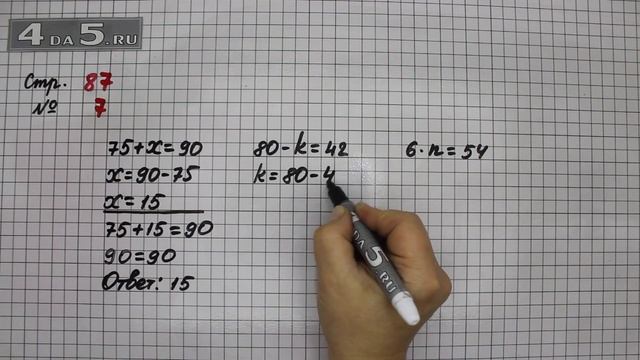 4 DA 5.RU
Стр. 87
№ 7
75+x=90
x=90-75
x=15
75+15=90
90=90
Ответ: 15
80-k=42
k=80-4
6·n=54
4DA5.RU